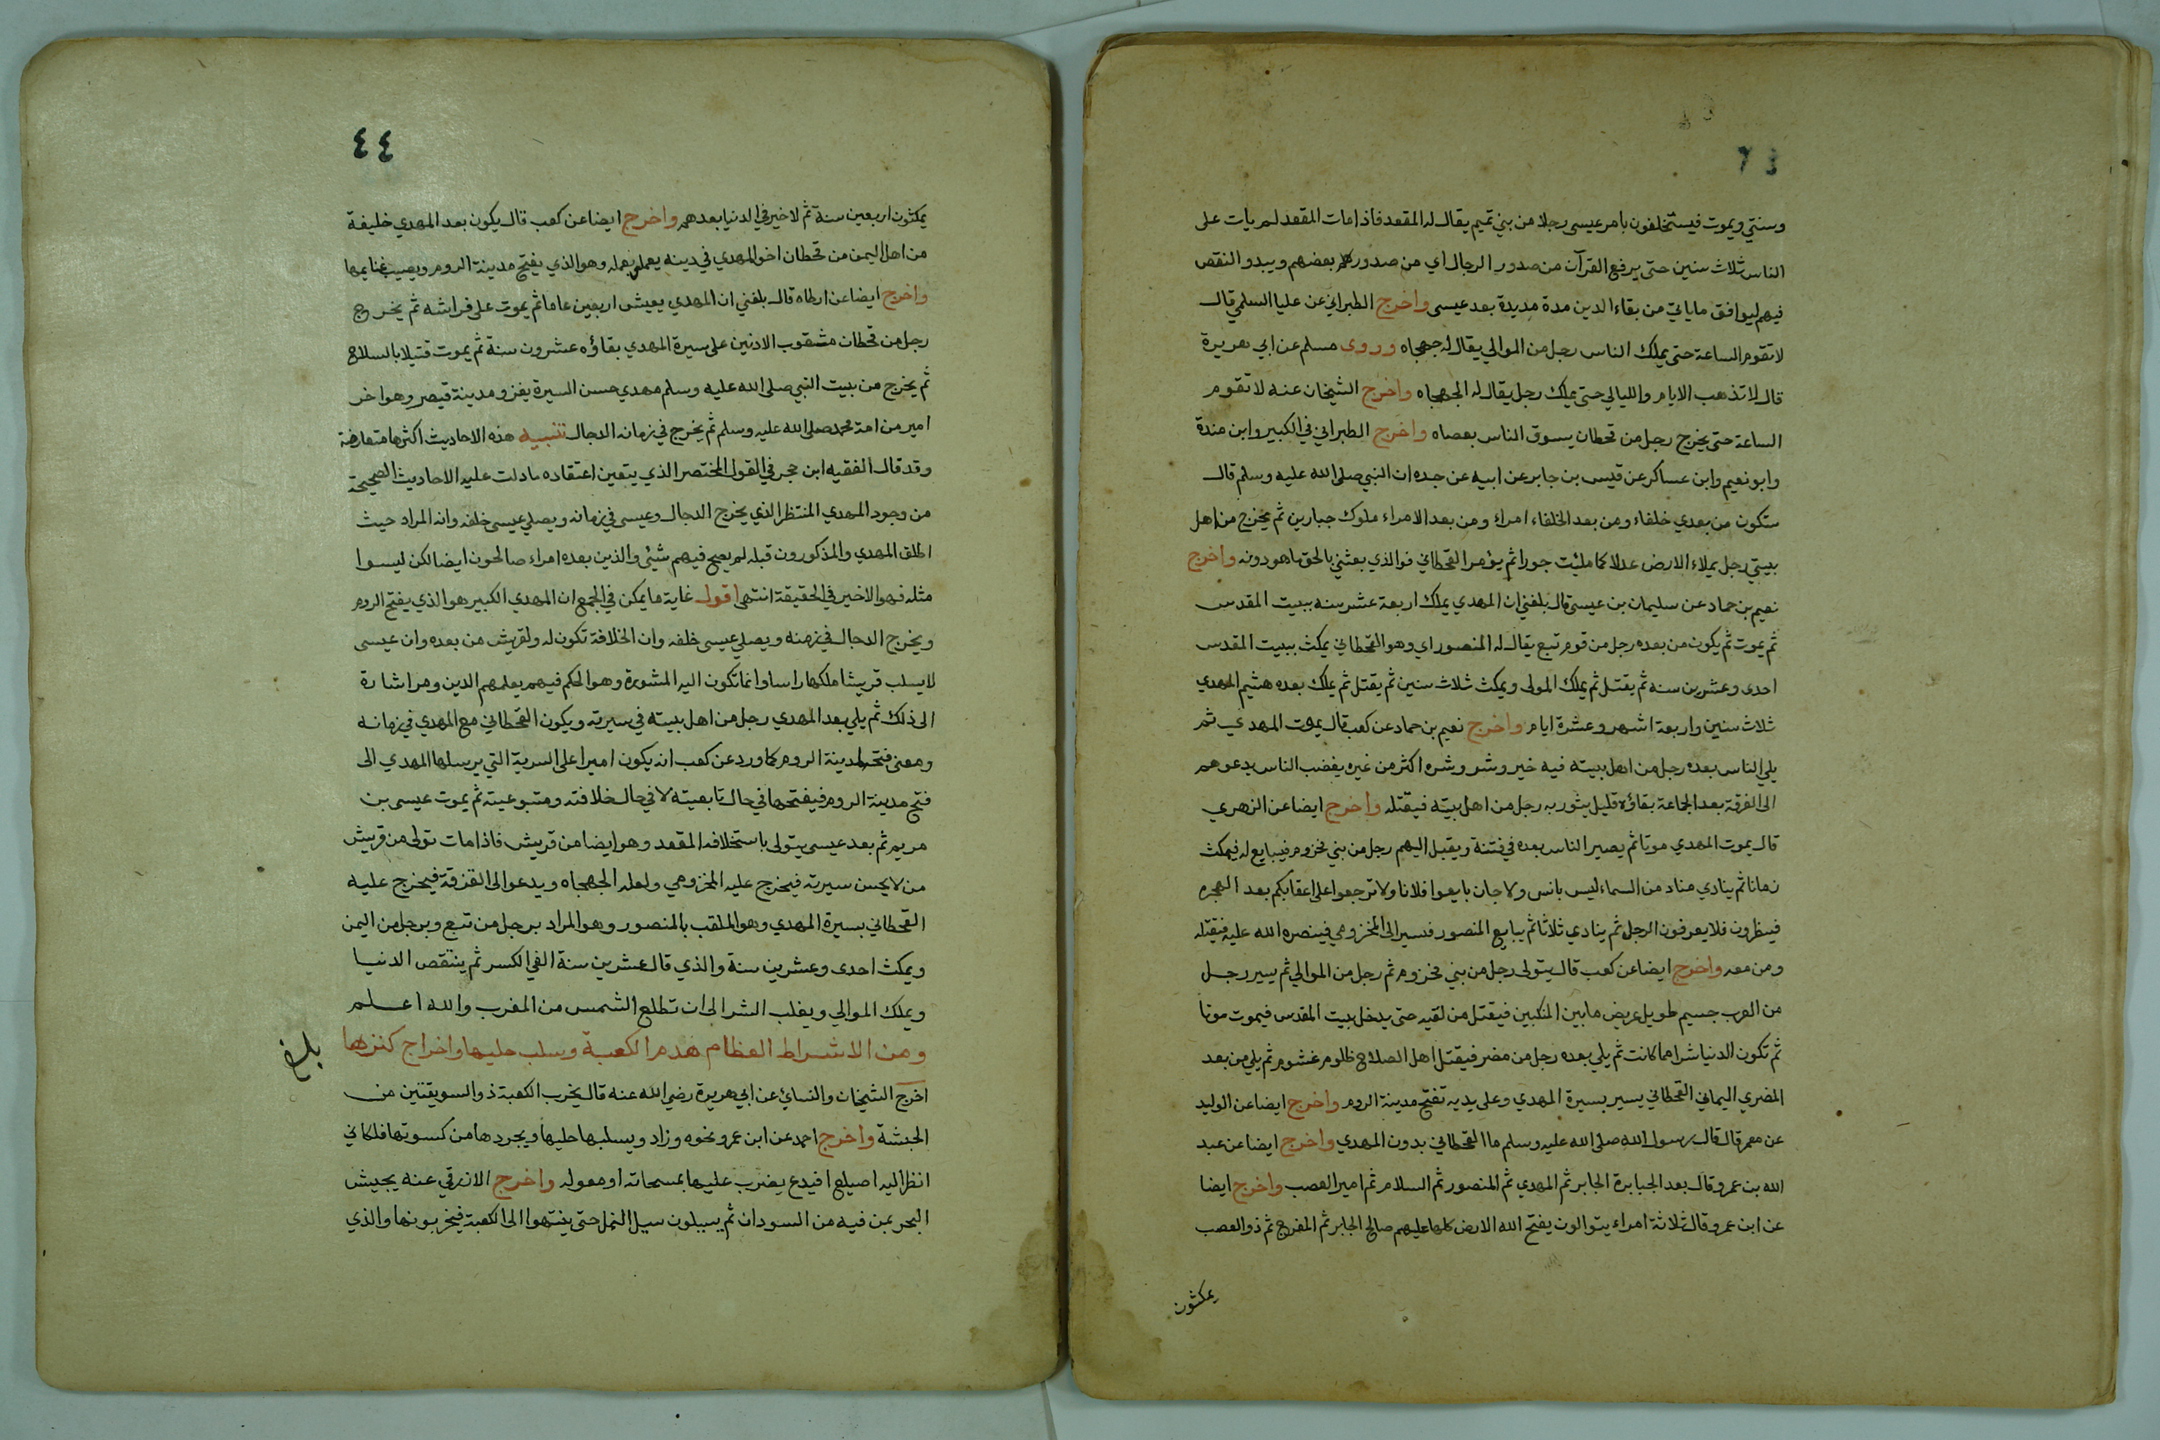 ٤٣
وسنتي ويموت فيستخلفون بامر عيسى رجلا من بني تميم يقال له المقعد فاذا مات المقعد لم يات على
الناس ثلاث سنين حتى يرفع القرآن من صدور الرجال اي من صدور بعضهم ويبدو النقص
فيهم ليوافق ماياتي من بقاء الدين مدة مديدة بعد عيسى واخرج الطبراني عن عليا السلمي قال
لا تقوم الساعة حتى يملك الناس رجل من الموالي يقال له جهجاه وروى مسلم عن ابي هريرة
قال لا تذهب الايام والليالي حتى يملك رجل يقال له الجهجاه واخرج الشيخان عنه لا تقوم
الساعة حتى يخرج رجل من قحطان يسوق الناس بعصاه واخرج الطبراني في الكبير وابن مندة
وابو نعيم وابن عساكر عن قيس بن جابر عن ابيه عن جده ان النبي صلى الله عليه وسلم قال
ستكون من بعدي خلفاء ومن بعد الخلفاء امراء ومن بعد الامراء ملوك جبارين ثم يخرج من اهل
بيتي رجل يملاء الارض عدلا كما ملئت جورا ثم يؤمر القحطاني فوالذي بعثني بالحق ما هو دونه واخرج
نعيم بن حماد عن سليمان بن عيسى قال بلغني ان المهدي يملك اربعة عشر سنه ببيت المقدس
ثم يموت ثم يكون من بعده رجل من قوم تبع يقال له المنصور اي وهو القحطاني يمكث ببيت المقدس
احدى وعشرين سنه ثم يقتل ثم يملك المولى ويمكث ثلاث سنين ثم يقتل ثم يملك بعده هشيم المهدي
ثلاث سنين واربعة اشهر وعشرة ايام واخرج نعيم بن حماد عن كعب قال يموت المهدي ثم
يلي الناس بعده رجل من اهل بيته فيه خير وشر وشره اكثر من خيره يغضب الناس يدعوهم
الى الفرقة بعد الجماعة بقاؤه قليل يثور به رجل من اهل بيته فيقتله واخرج ايضا عن الزهري
قال يموت المهدي موتا ثم يصير الناس بعده في فتنة ويقبل اليهم رجل من بني مخزوم فيبايع له فيمكث
زمانا ثم ينادي مناد من السماء ليس بانس ولا جان بايعوا فلانا ولا ترجعوا على اعقابكم بعد الهجره
فينظرون فلا يعرفون الرجل ثم ينادي ثلاثا ثم يبايع المنصور فسير الى المخزومي فينصره الله عليه فيقتله
ومن معه واخرج ايضا عن كعب قال يتولى رجل من بني مخزوم ثم رجل من الموالي ثم يسير رجل
من العرب جسيم طويل عريض ما بين المنكبين فيقتل من لقيه حتى يدخل بيت المقدس فيموت موتا
ثم تكون الدنيا شرا مما كانت ثم يلي بعده رجل من مضر فيقتل اهل الصلاح ظلوم غشوم ثم يلي من بعد
المضري اليماني القحطاني يسير بسيرة المهدي وعلى يديه تفتح مدينة الروم واخرج ايضا عن الوليد
عن معمر قال قال رسول الله صلى الله عليه وسلم ما القحطاني بدون المهدي واخرج ايضا عن عبد
الله بن عمرو قال بعد الجبابرة الجابر ثم المهدي ثم المنصور ثم السلام ثم امير العصب واخرج ايضا
عن ابن عمرو قال ثلاثة امراء يتوالون يفتح الله الارض كلها عليهم صالح الجابر ثم المفرج ثم ذو العصب
يمكثون
٤٤
يمكثون اربعين سنة ثم لا خير في الدنيا بعدهم واخرج ايضا عن كعب قال يكون بعد المهدي خليفة
من اهل اليمن من قحطان اخو المهدي في دينه يعمل بعمله وهو الذي يفتح مدينة الروم ويصيب غنايمها
واخرج ايضا عن ارطاه قال بلغني ان المهدي يعيش اربعين عاما ثم يموت على فراشه ثم يخرج
رجل من قحطان مثقوب الاذنين على سيرة المهدي بقاؤه عشرون سنة ثم يموت قتيلا بالسلاح
ثم يخرج من بيت النبي صلى الله عليه وسلم مهدي حسن السيرة يغزو مدينة قيصر وهو اخر
امير من امة محمد صلى الله عليه وسلم ثم يخرج في زمانه الدجال تنبيه هذه الاحاديث اكثرها متعارضة
وقد قال الفقيه ابن حجر في القول المختصر الذي يتعين اعتقاده ما دلت عليه الاحاديث الصحيحة
من وجود المهدي المنتظر الذي يخرج الدجال وعيسى في زمانه ويصلي عيسى خلفه وانه المراد حيث
اطلق المهدي والمذكورون قبله لم يصح فيهم شيئ والذين بعده امراء صالحون ايضا لكن ليسوا
مثله فهو الاخير في الحقيقة انتهى اقول غاية ما يمكن في الجمع ان المهدي الكبير هو الذي يفتح الروم
ويخرج الدجال في زمنه ويصلي عيسى خلفه وان الخلافة تكون له ولقريش من بعده وان عيسى
لا يسلب قريشا ملكها راسا وانما تكون اليه المشورة وهو الحكم فيهم يعلمهم الدين ومر اشارة
الى ذلك ثم يلي بعد المهدي رجل من اهل بيته في سيرته ويكون القحطاني مع المهدي في زمانه
ومعنى فتحه لمدينة الروم كما ورد عن كعب انه يكون اميرا على السرية التي يرسلها المهدي الى
فتح مدينة الروم فيفتحها في حال تابعيته لا في حال خلافته ومتبوعيته ثم يموت عيسى بن
مريم ثم بعد عيسى يتولى باستخلافه المقعد وهو ايضا من قريش فاذا مات تولى من قريش
من لا يحسن سيرته فيخرج عليه المخزومي ولعله الجهجاه ويدعو الى الفرقة فيخرج عليه
القحطاني بسيرة المهدي وهو الملقب بالمنصور وهو المراد برجل من تبع وبرجل من اليمن
ويمكث احدى وعشرين سنة والذي قال عشرين سنة الغي الكسر ثم ينتقص الدنيا
ويملك الموالي ويغلب الشر الى ان تطلع الشمس من المغرب والله اعلم
ومن الاشراط العظام هدم الكعبة وسلب حليها واخراج كنزها
بلغ
اخرج الشيخان والنسائي عن ابي هريرة رضي الله عنه قال يخرب الكعبة ذو السويقتين من
الحبشة واخرج احمد عن ابن عمرو نحوه وزاد ويسلبها حليها ويجردها من كسوتها فلكاني
انظر اليه اصيلع افيدع يضرب عليها بمسحاته او معوله واخرج الازرقي عنه يجيش
البحر بمن فيه من السودان ثم يسيلون سيل النمل حتى ينتهوا الى الكعبة فيخربونها والذي